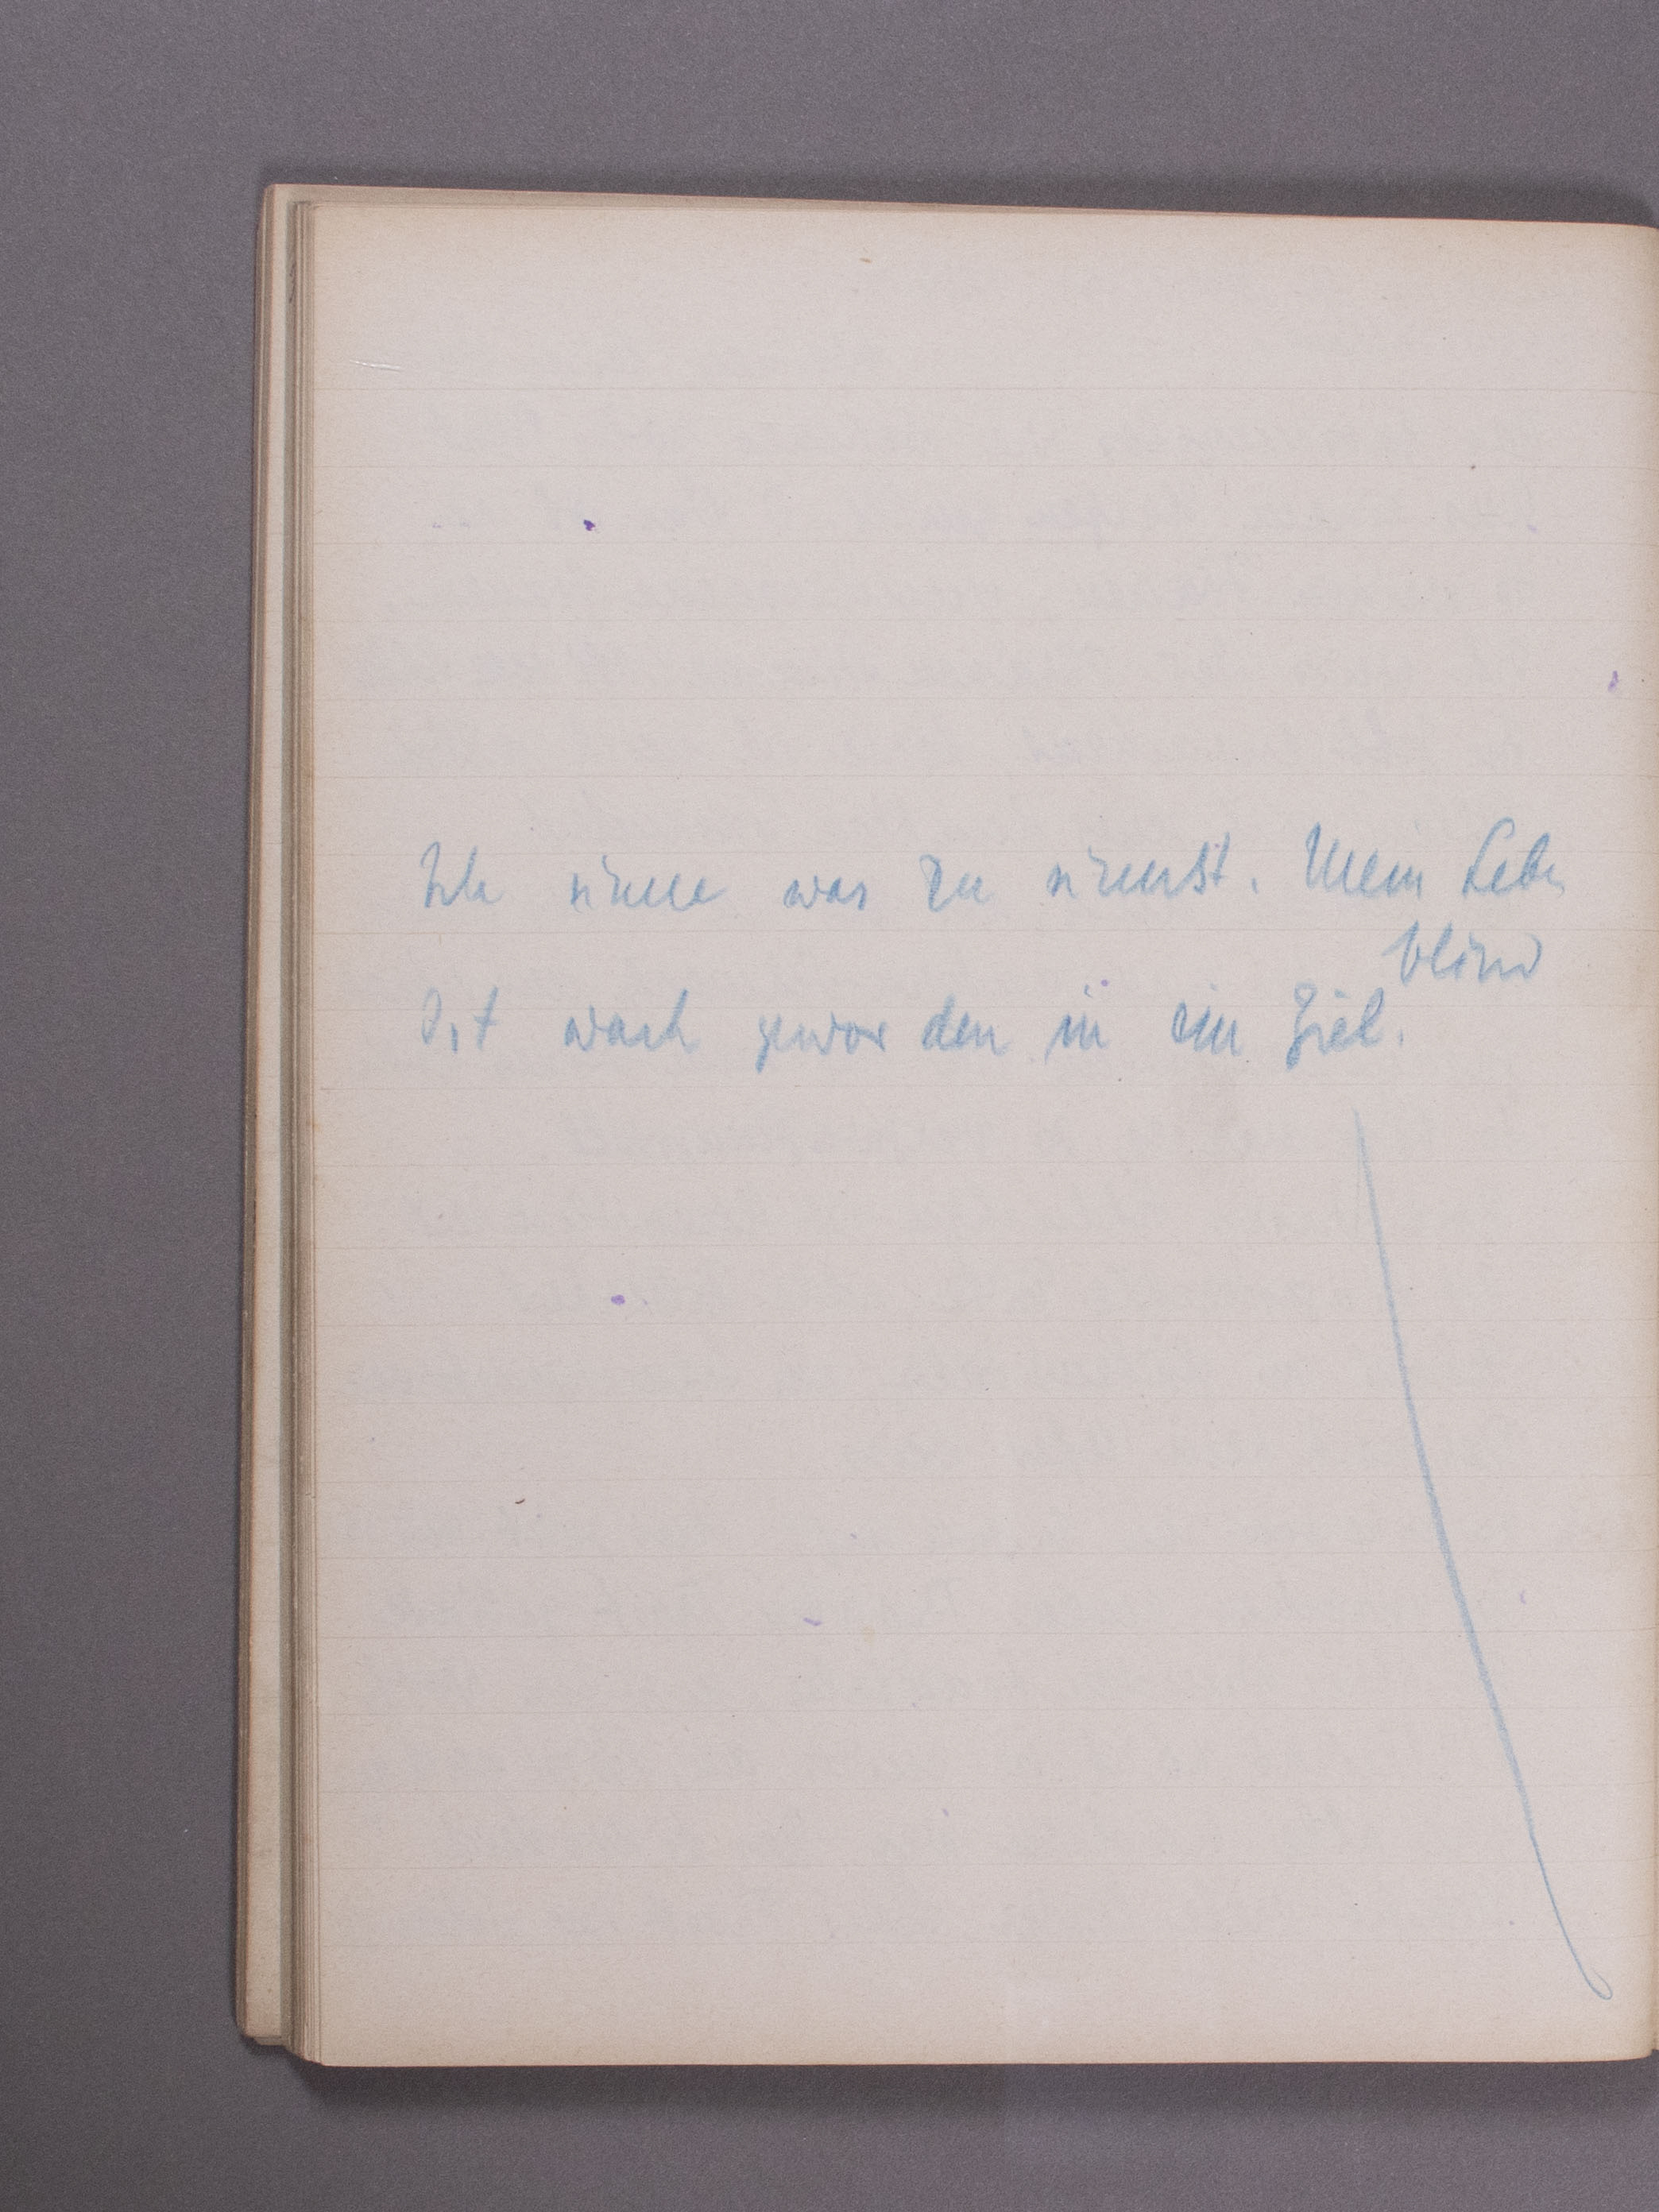 Ich sinne was Du sinnst. Mein Leben
blind
Ist wach geworden in ein Ziel.